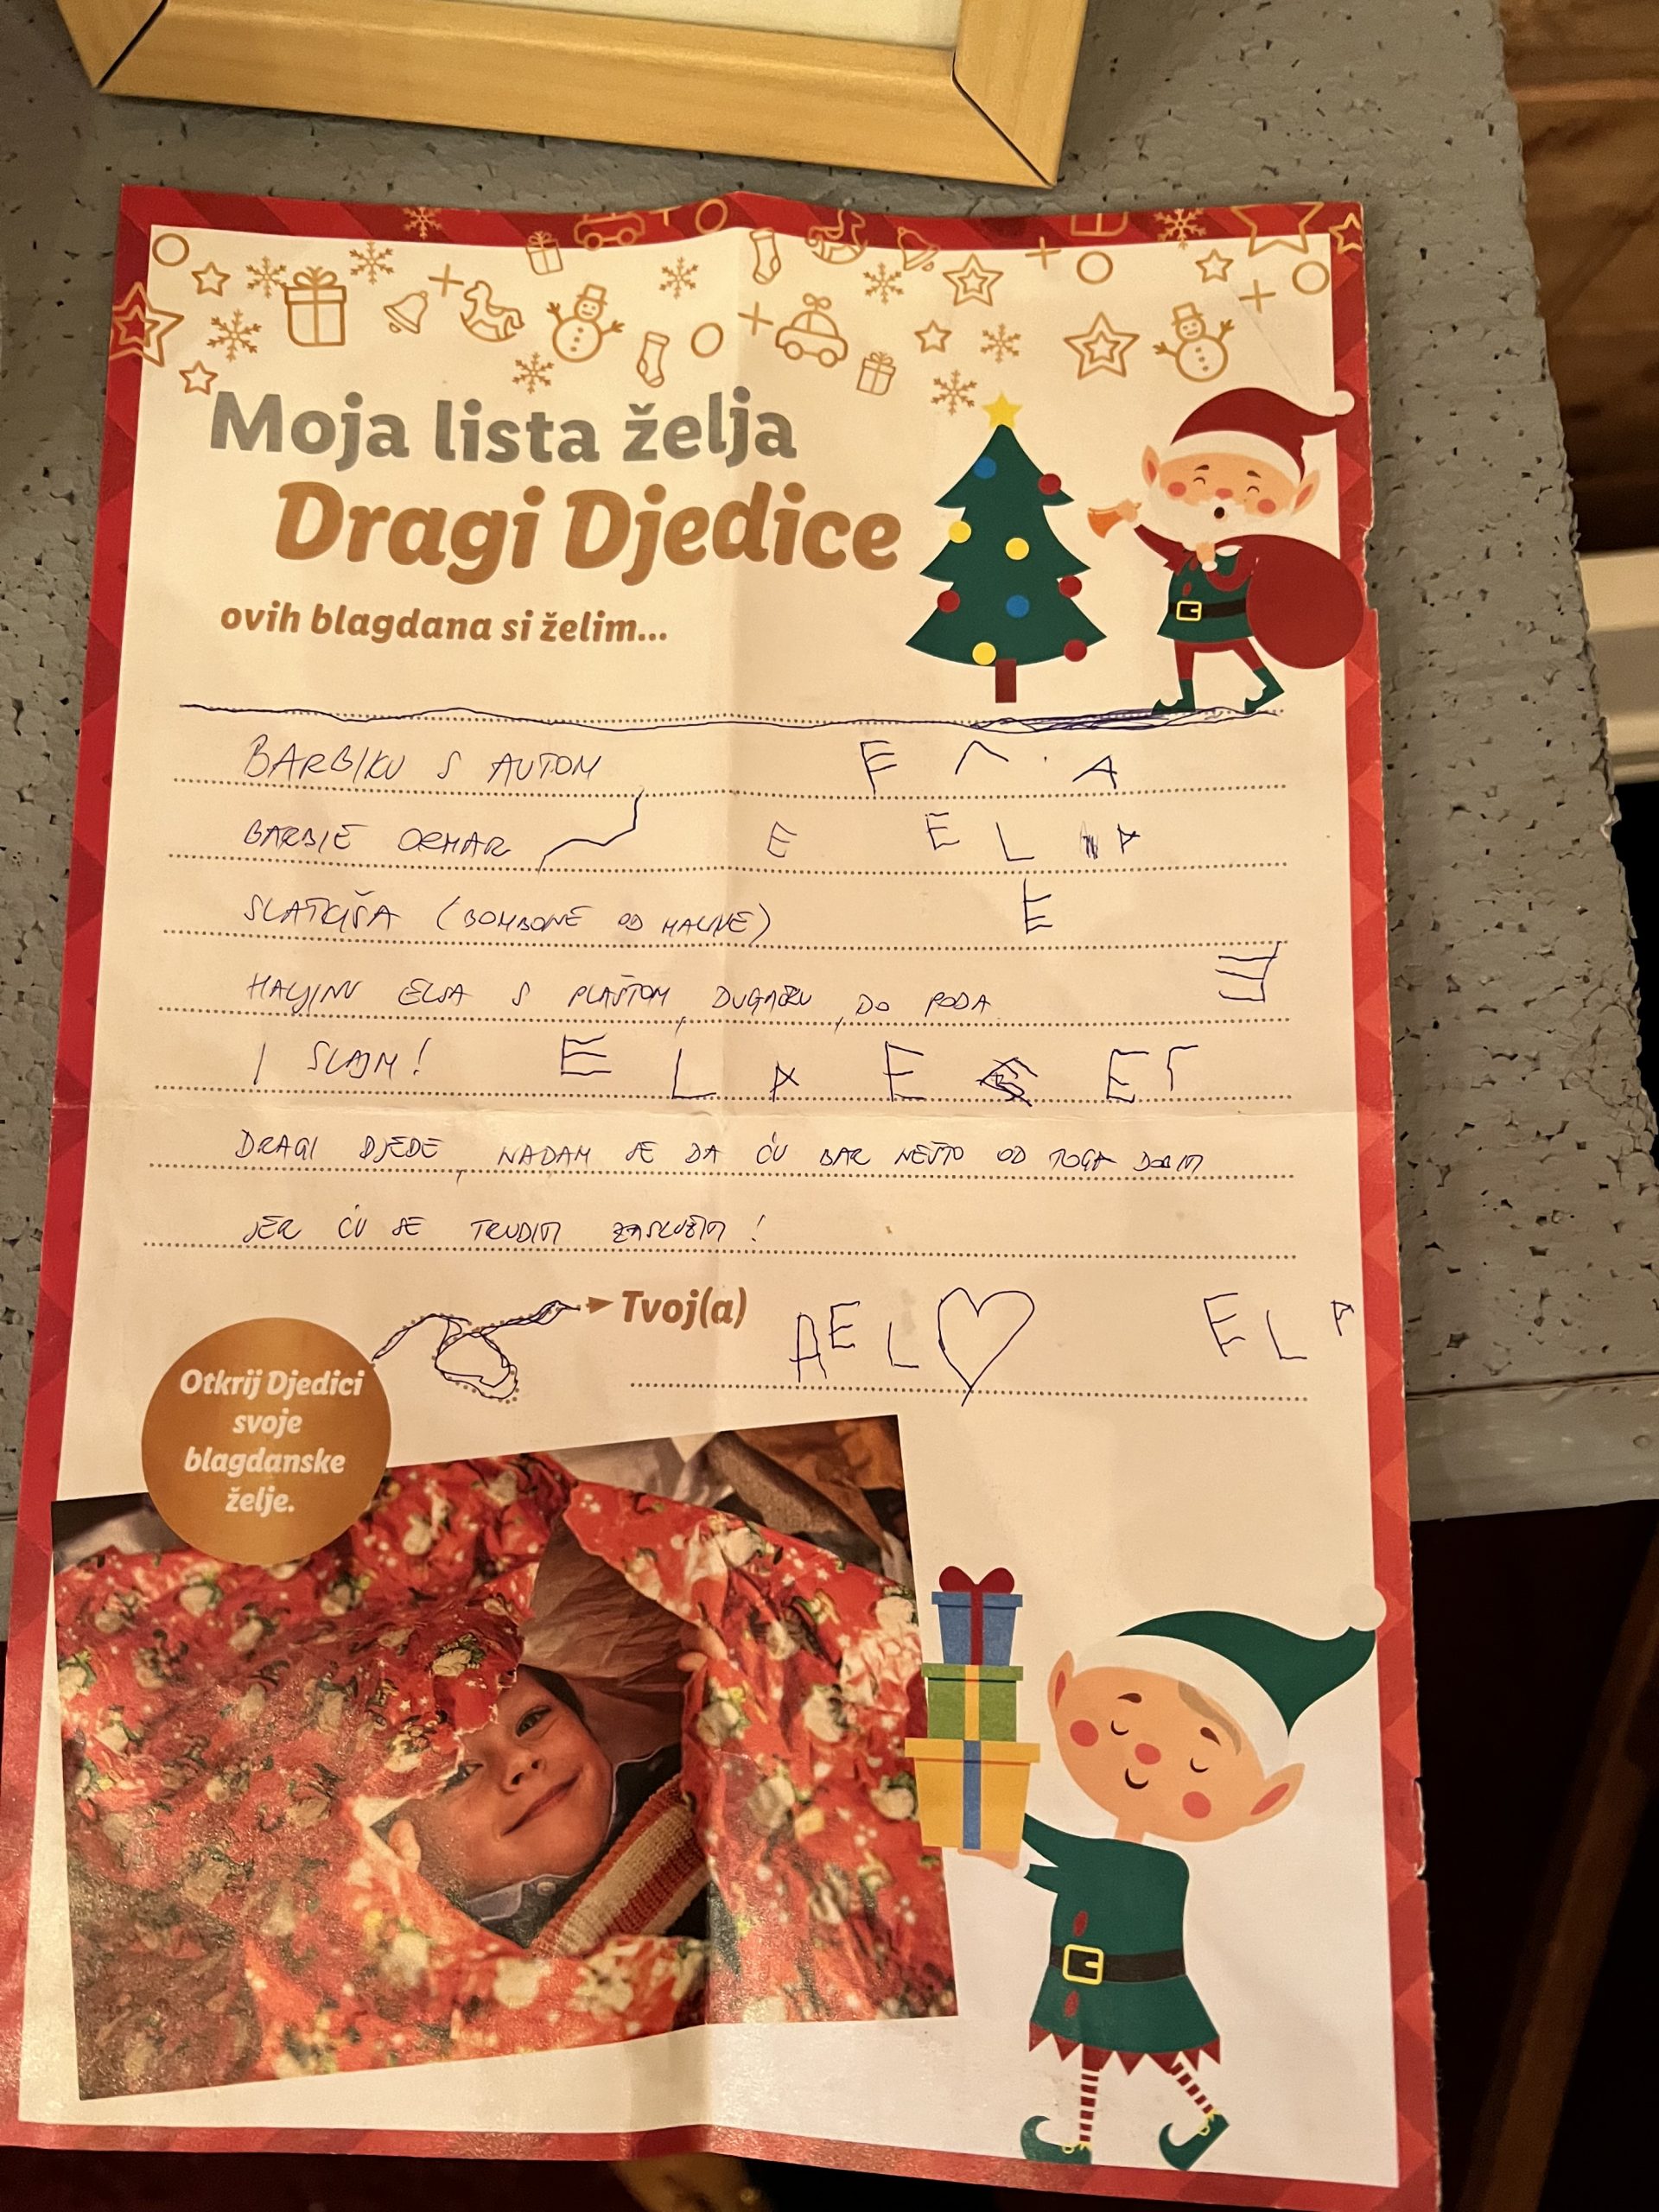 Moja lista želja
Dragi Djedice
ovih blagdana si želim...
BARBIKU S AUTOM F Λ · A
BARBIE ORMAR E E L A
SLATKIŠA (BOMBONE OD MALINE) E
HALJINU ELSA S PLAŠTOM, DUGAČKU, DO PODA E
I SLAJM! E L A E E Γ
DRAGI DJEDE, NADAM SE DA ĆU BAR NEŠTO OD TOGA DOBITI
JER ĆU SE TRUDITI ZASLUŽITI!
Tvoj(a) A E L E L A
Otkrij Djedici
svoje
blagdanske
želje.